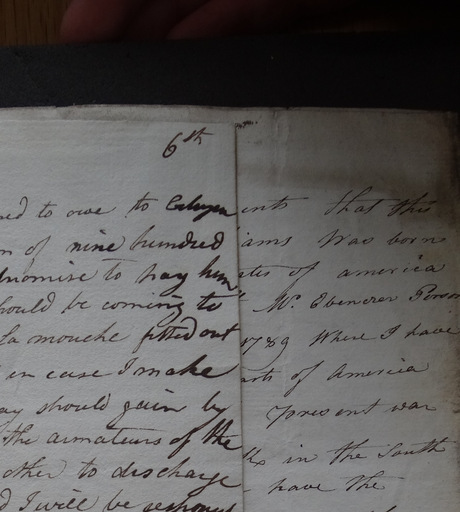 6th
to owe to Citizen
of nine hundred
promise to pay him
should be coming to
la mouche fitted out
in case I make
should gain by
the armateurs of the
other to discharge
I will be
that this
was born
of america
Mr. Ebenezer
1789 Where I have
of America
present war
in the South
have the